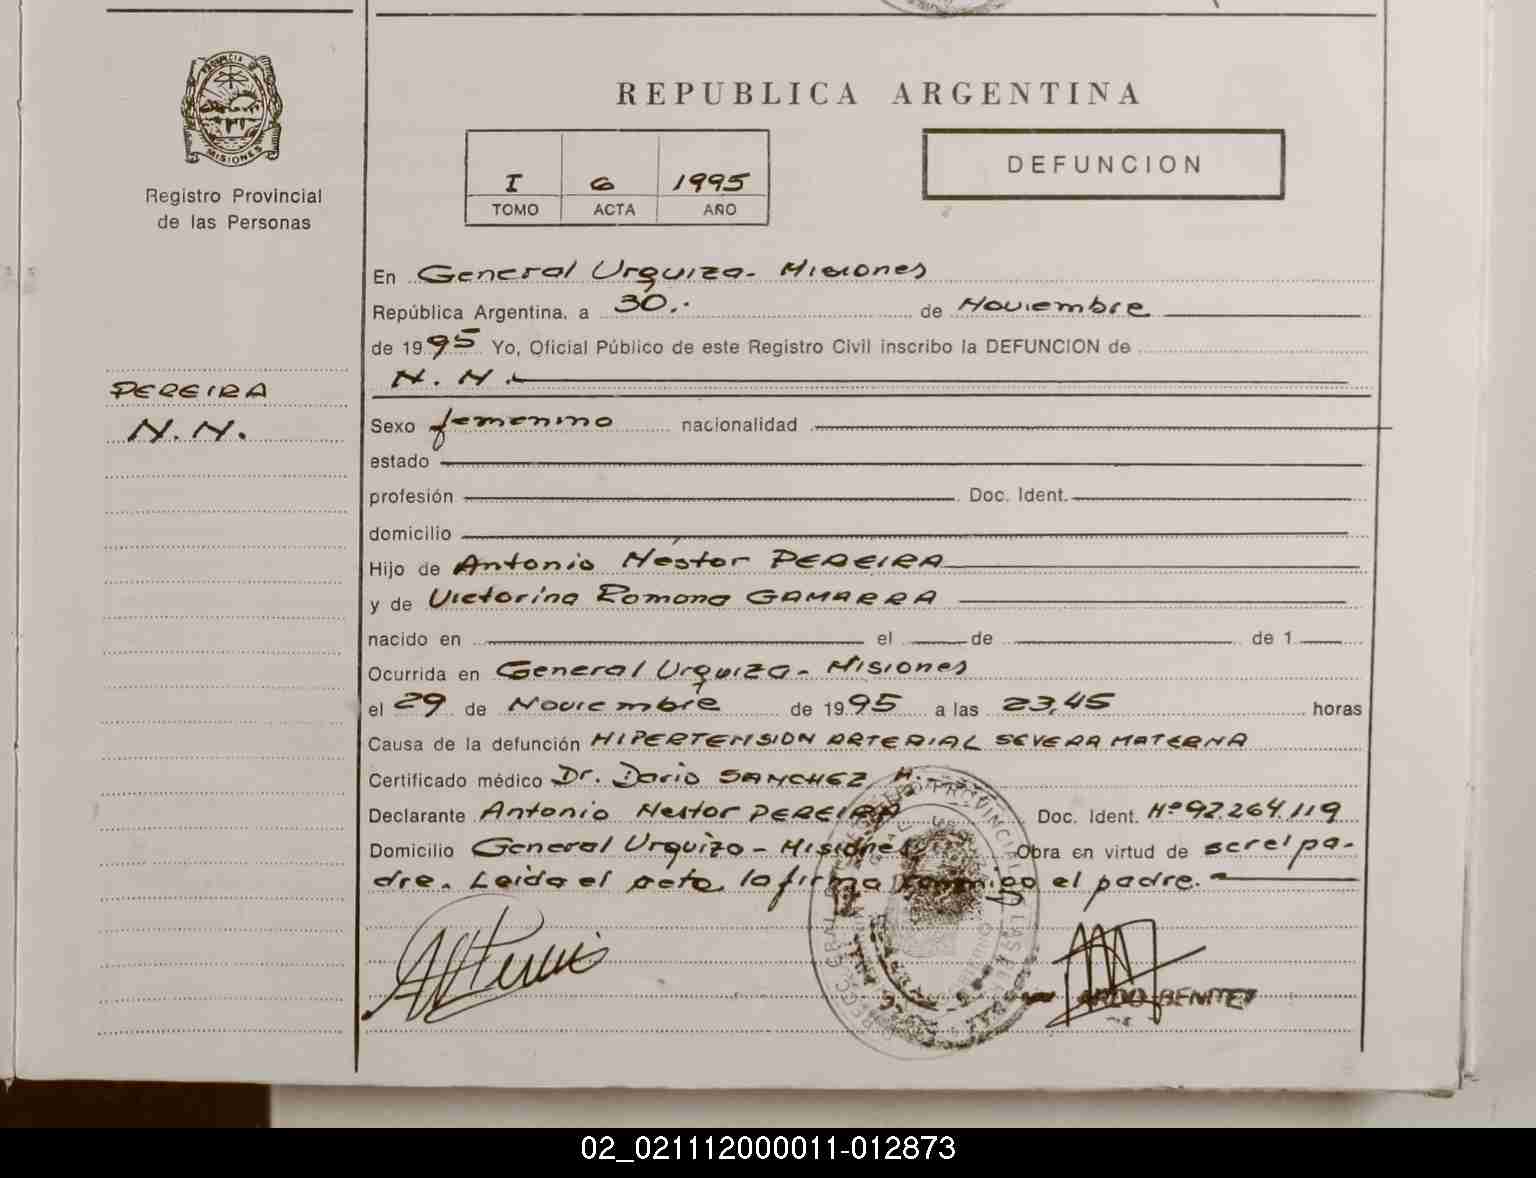 PROVINCIA DE
MISIONES
Registro Provincial
de las Personas
PEREIRA
N.N.
REPUBLICA ARGENTINA
I 6 1995
TOMO ACTA AÑO
DEFUNCION
En General Urquiza - Misiones
República Argentina, a 30.. de Noviembre
de 1995 Yo, Oficial Público de este Registro Civil inscribo la DEFUNCION de
N. N.
Sexo femenino nacionalidad
estado
profesión Doc. Ident.
domicilio
Hijo de Antonio Néstor PEREIRA
y de Victorina Romona GAMARRA
nacido en el de de 1
Ocurrida en General Urquiza - Misiones
el 29 de Noviembre de 1995 a las 23,45 horas
Causa de la defunción HIPERTENSION ARTERIAL SEVERA MATERNA
Certificado médico Dr. Dario SANCHEZ H.
Declarante Antonio Nestor PEREIRA Doc. Ident. Nº 92.264.119
Domicilio General Urquiza - Misiones Obra en virtud de ser el pa-
dre. Leida el acta, la firma conmigo el padre.
BENITEZ
02_021112000011-012873